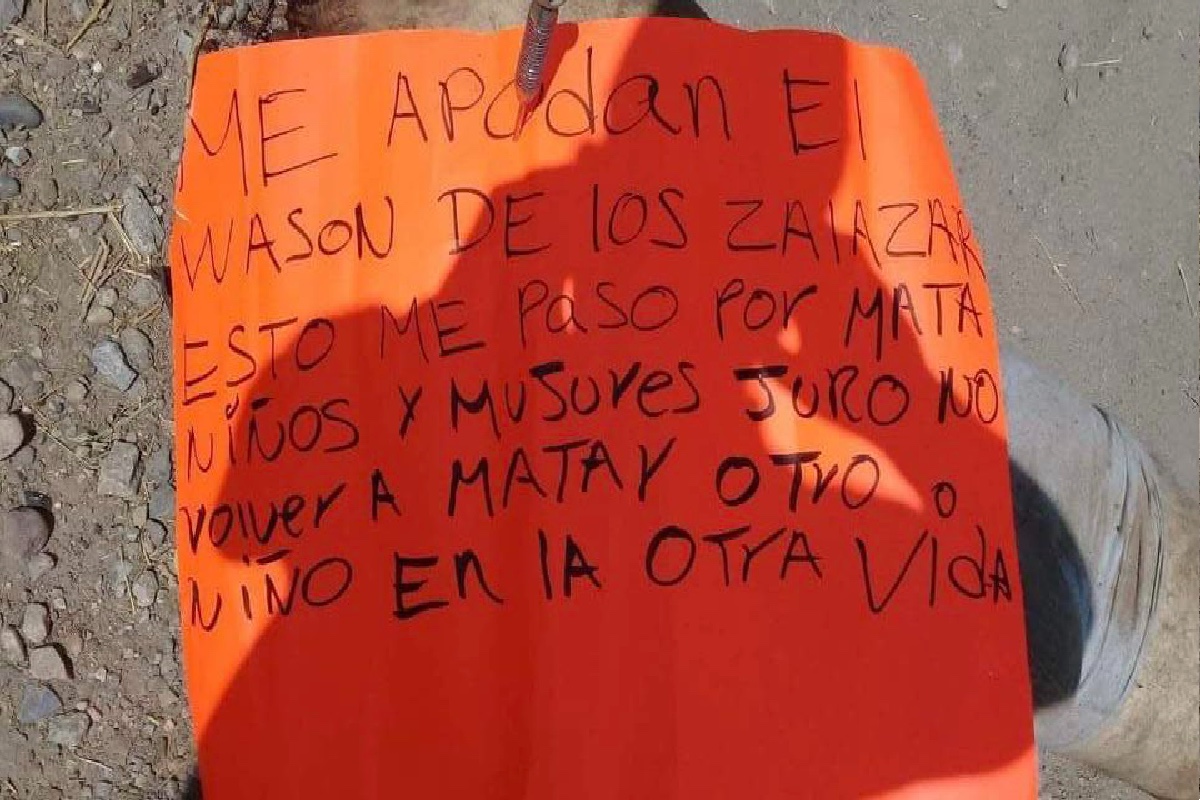 ME APodan El
WASON DE lOS ZAlAZAR
ESTO ME PaSO POr MATA
NIÑOS Y MUJUres JURO NO
volver A MATAr OTrO o
NIÑO En lA OTrA VIdA